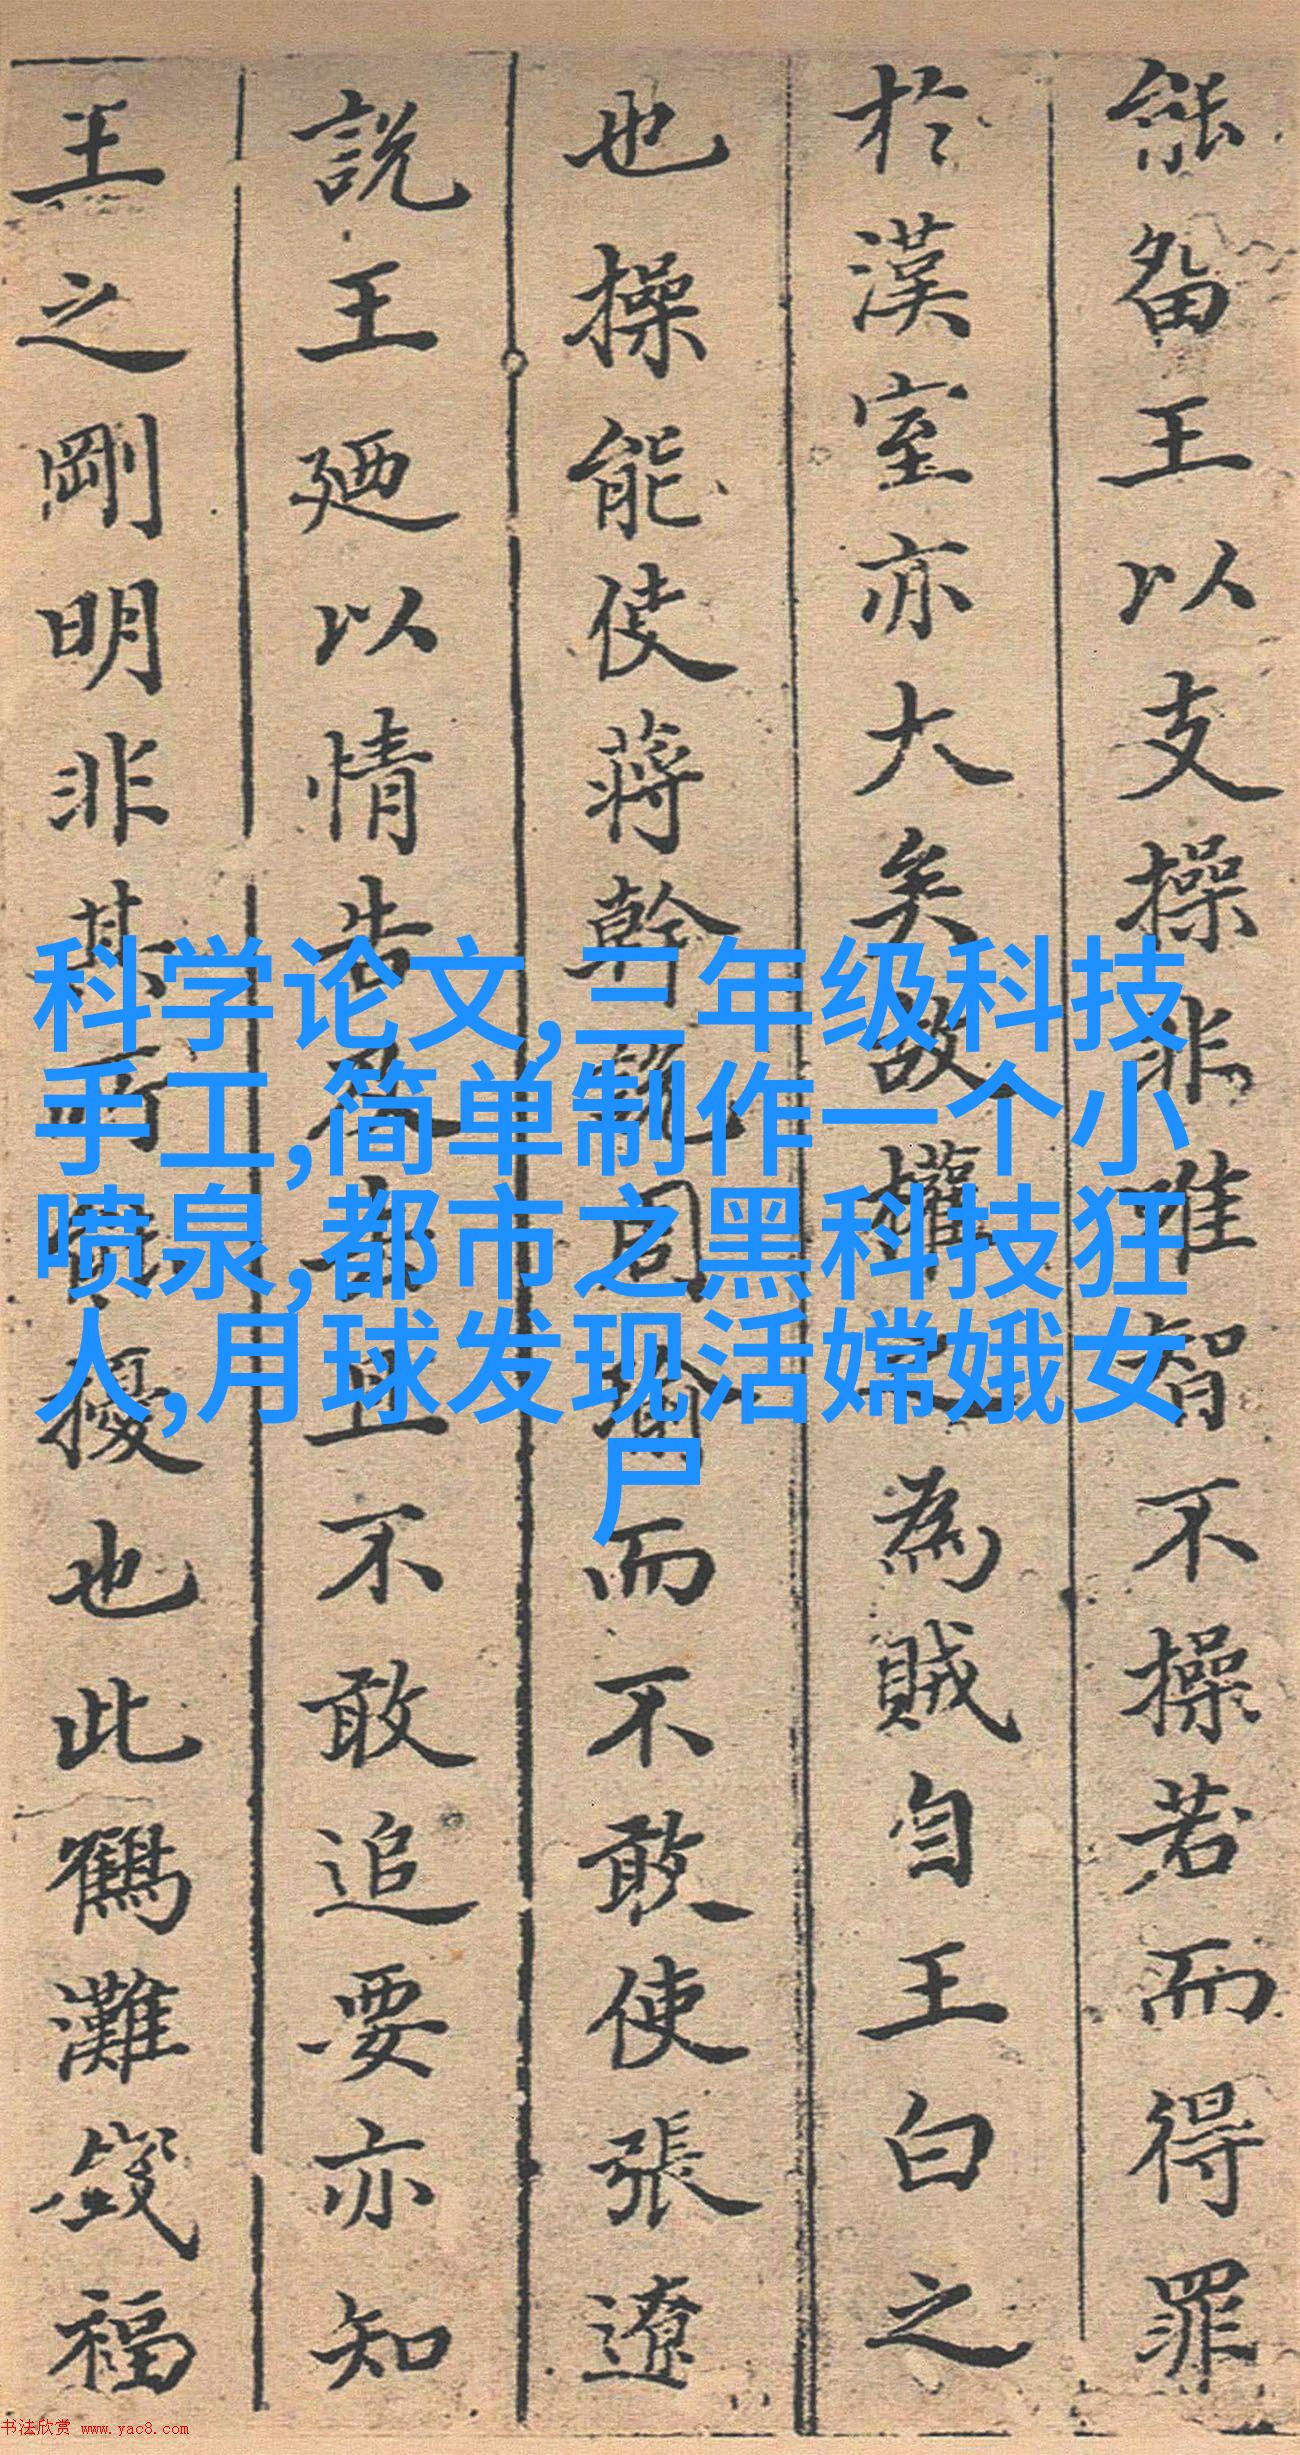 能留王以支操非唯智不操若而得罪
於漢室亦大矣故權為賊自王白之
也操能使蔣幹說周瑜而不敢使張遼
說王廼以情告且不敢追要亦知
王之剛明非其所擾也此鶴灘福
科学论文,三年级科技
手工,简单制作一个小
喷泉,都市之黑科技狂
人,月球发现活嫦娥女
尸
书法欣赏 www.yac8.com